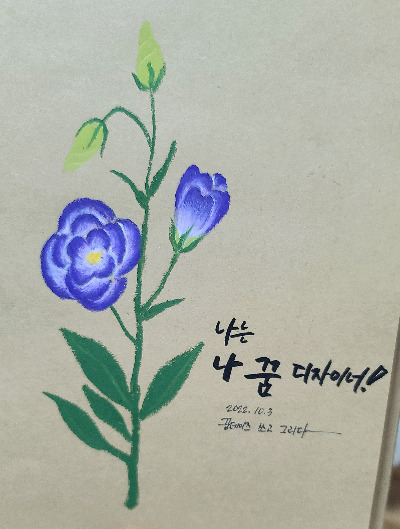 나는
나 꿈 디자이너!
2022. 10. 3
쓰고 그리다